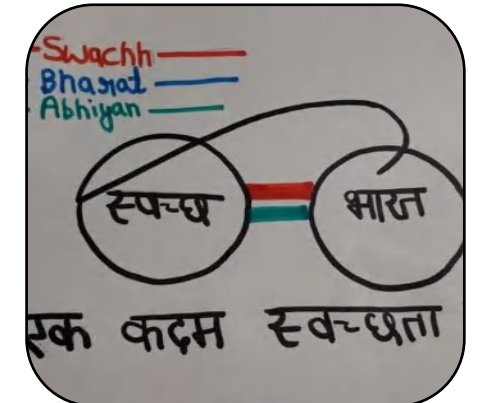 Swachh
Bharat
Abhiyan
स्वच्छ भारत
एक कदम स्वच्छता